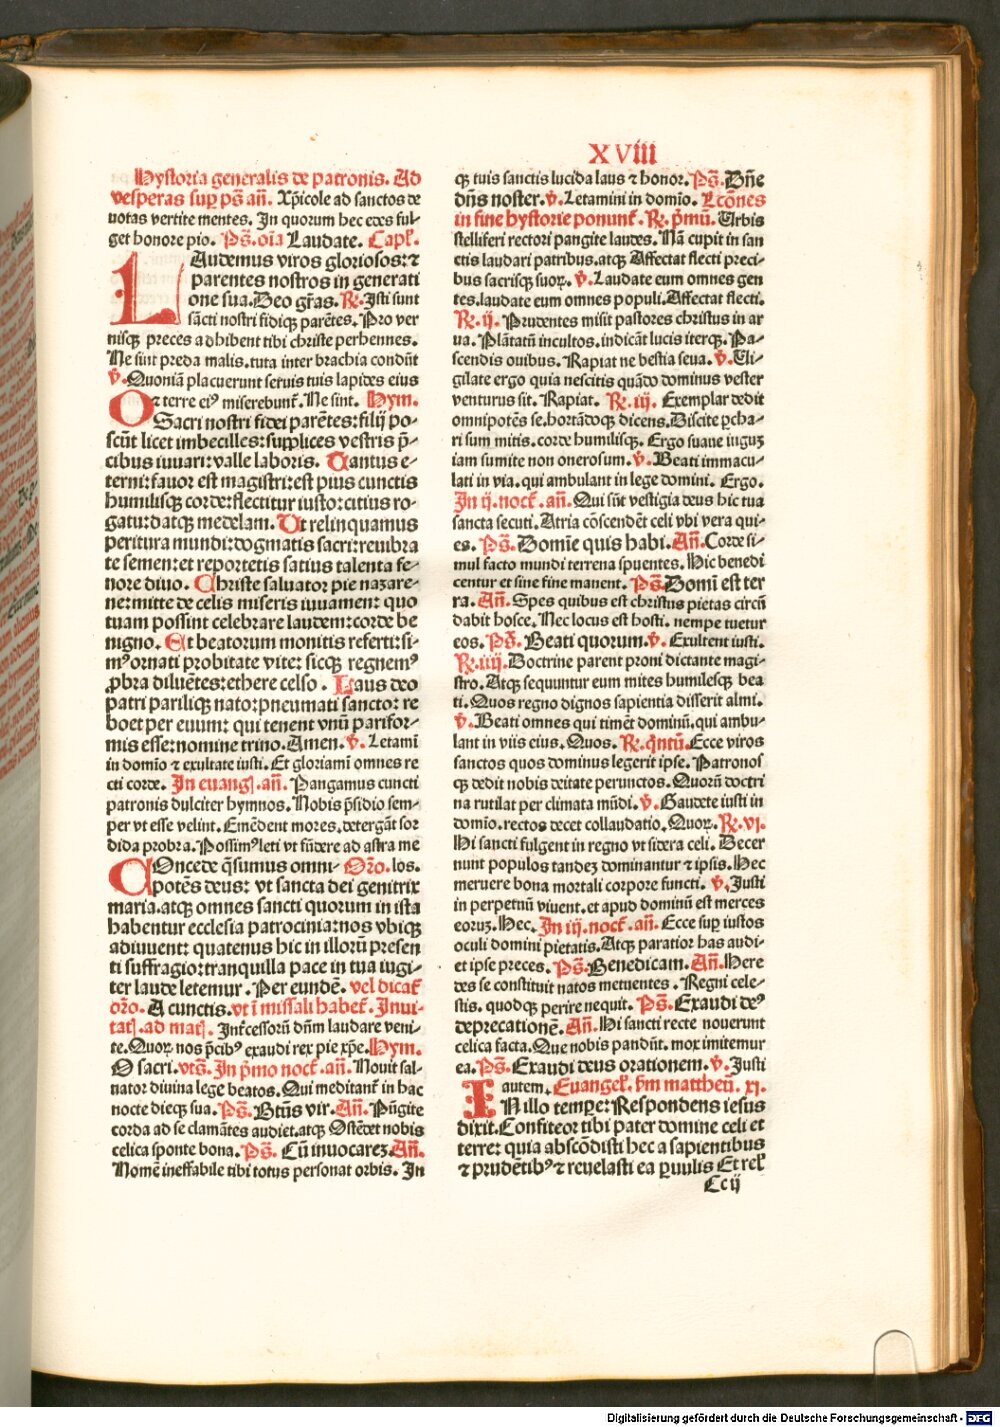 XVIII
Hystoria generalis de patronis. Ad
vesperas sup̱ p̄s añ. Xp̄icole ad sanctos de
uotas vertite mentes. In quorum hec edes ful⸗
get honore pio. Ps̄. oīa Laudate. Capl̄.
LAudemus viros gloriosos: ⁊
parentes nostros in generati
one sua. Deo gr̄as. ℟. Isti sunt
sāc̄ti nostri fidiq; parētes. Pro ver
nisq; preces adhibent tibi christe perhennes.
Ne sint preda malis. tuta inter brachia condūt
℣. Quoniā placuerunt seruis tuis lapides eius
⁊ terre eiꝰ miserebunt̄. Ne sint. Hym.
O Sacri nostri fidei parētes: filij po⸗
scūt licet imbecilles: supplices vestris p̄⸗
cibus iuuari: valle laboris. Tantus e⸗
terni: fauor est magistri: est pius cunctis
humilisq; corde: flectitur iusto: citius ro⸗
gatu: datq; medelam. Vt relinquamus
peritura mundi: dogmatis sacri: reuibra
te semen: et reportetis satius talenta fe⸗
nore diuo. Christe saluator pie nazare⸗
ne: mitte de celis miseris iuuamen: quo
tuam possint celebrare laudem: corde be
nigno. Et beatorum monitis referti: si⸗
mꝰ ornati probitate vite: sicq; regnemꝰ
ꝓbra diluētes: ethere celso. Laus deo
patri parilíq; nato: pneumati sancto: re
boet per euum: qui tenent vnū parifor⸗
mis esse: nomine trino. Amen. ℣. Letamī
in domīo ⁊ exultate iusti. Et gloriamī omnes re
cti corde. In euanḡ. añ. Pangamus cuncti
patronis dulciter hymnos. Nobis p̄sidio sem⸗
per vt esse velint. Emēdent mores. detergāt sor
dida probra. Possimꝰ leti vt fūdere ad astra me
COncede q̄sumus omni⸗ Or̄o. los.
potēs deus: vt sancta dei genitrix
maria. atq; omnes sancti quorum in ista
habentur ecclesia patrocinia: nos vbiq;
adiuuent: quatenus hic in illorū presen
ti suffragio: tranquilla pace in tua iugi⸗
ter laude letemur. Per eundē. vel dicat̄
or̄o. A cunctis. vt ī missali habet̄. Inui⸗
tat̄. ad mat̄. Int̄cessorū dn̄m laudare veni⸗
te. Quoꝝ nos p̄cibꝰ exaudi rex pie xp̄e. Hym.
O sacri. vt s̄. In p̄mo noct̄. añ. Nouit sal⸗
nator diuina lege beatos. Qui meditant̄ in hac
nocte dieq; sua. Ps̄. Btūs vir. Añ. Pūgite
corda ad se clamātes audiet. atq; Ostēdet nobis
celica sponte bona. Ps̄. Cū inuocarez. Añ.
Nomē ineffabile tibi totus personat orbis. In
q; tuis sanctis lucida laus ⁊ honor. Ps̄. Dn̄e
dn̄s noster. ℣. Letamini in domīo. Lc̄ōnes
in fine hystorie ponunt̄. ℟. p̄mū. Vrbis
stelliferi rectori pangite laudes. Nā cupit in san
ctis laudari patribus. atq; Affectat flecti preci⸗
bus sacrisq; suoꝝ. ℣. Laudate eum omnes gen
tes. laudate eum omnes populi. Affectat flecti.
℟. ij. Prudentes misit pastores christus in ar
ua. Plātatū incultos. indicāt lucis iterq;. Pa⸗
scendis ouibus. Rapiat ne bestia seua. ℣. Vi⸗
gilate ergo quia nescitis quādo dominus vester
venturus sit. Rapiat. ℟. iij. Exemplar dedit
omnipotēs se. hortādoq; dicens. Discite p̱cha⸗
ri sum mitis. corde humilisq;. Ergo suaue iuguz
iam sumite non onerosum. ℣. Beati immacu⸗
lati in via. qui ambulant in lege domini. Ergo.
In ij. noct̄. añ. Qui sūt vestigia deus hic tua
sancta secuti. Atria cōscendēt celi vbi vera qui⸗
es. Ps̄. Domīe quis habi. Añ. Corde si⸗
mul facto mundi terrena spuentes. Hic benedi
centur et sine fine manent. Ps̄. Domī est ter
ra. Añ. Spes quibus est christus pietas circū
dabit hosce. Nec locus est hosti. nempe tuetur
eos. Ps̄. Beati quorum. ℣. Exultent iusti.
℟. iiij. Doctrine parent proni dictante magi⸗
stro. Atq; sequuntur eum mites humilesq; bea
ti. Quos regno dignos sapientia disserit almi.
℣. Beati omnes qui timēt dominū. qui ambu⸗
lant in viis eius. Quos. ℟. q̄ntū. Ecce viros
sanctos quos dominus legerit ipse. Patronos
q; dedit nobis deitate perunctos. Quorū doctri
na rutilat per climata mūdi. ℣. Gaudete iusti in
domīo. rectos decet collaudatio. Quoꝝ. ℟. vi.
Hi sancti fulgent in regno vt sidera celi. Decer
nunt populos tandez dominantur ⁊ ipsis. Hec
meruere bona mortali corpore functi. ℣. Justi
in perpetuū viuent. et apud dominū est merces
eoruz. Hec. In iij. noct̄. añ. Ecce sup̱ iustos
oculi domini pietatis. Atq; paratior has audi⸗
et ipse preces. Ps̄. Benedicam. Añ. Here
des se constituit natos metuentes. Regni cele⸗
stis. quodq; perire nequit. Ps̄. Exaudi deꝰ
deprecationē. Añ. Hi sancti recte nouerunt
celica facta. Que nobis pandūt. mox imitemur
ea. Ps̄. Exaudi deus orationem. ℣. Justi
autem. Euangel̄. s̄m mattheū. xi.
IN illo tempe: Respondens iesus
dixit. Confiteor tibi pater domine celi et
terre: quia abscōdisti hec a sapientibus
⁊ prudētibꝰ ⁊ reuelasti ea ꝑuulis Et rel̄
Ccij
Digitalisierung gefördert durch die Deutsche Forschungsgemeinschaft - DFG